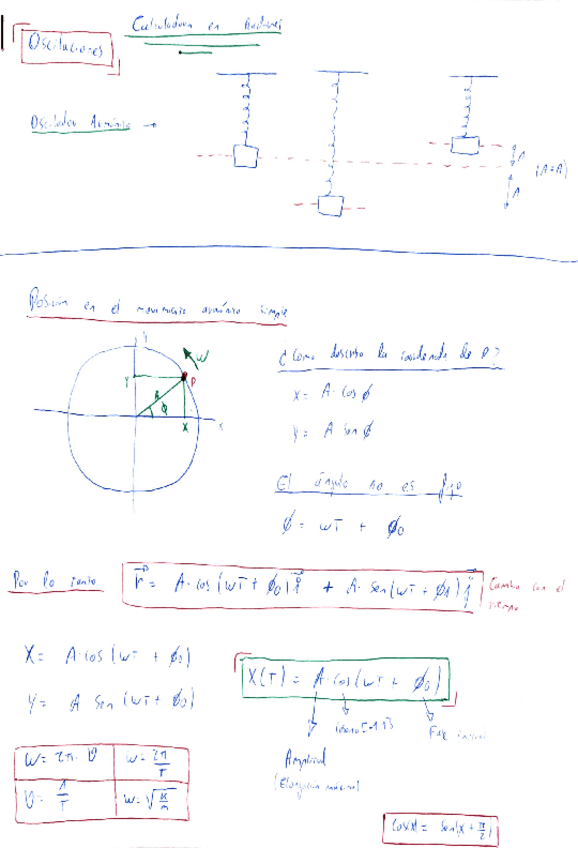 Calculadora en Radianes
Oscilaciones
Oscilador Armónico →
A
(A=A)
A
Posición en el movimiento armónico simple
y
ω
Y
P
A
φ
X
x
¿Como describo la coordenada de P?
x = A·cos φ
y = A sen φ
El ángulo no es fijo
φ = ωT + φ0
Por lo tanto
r = A·cos(ωT + φ0) i + A·sen(ωT + φ1) j
Cambia con el tiempo
X = A·cos(ωT + φ0)
Y = A sen(ωT + φ0)
X(T) = A·cos(ωT + φ0)
Fase inicial
Amplitud
(Elongación máxima)
ω = 2π·ν
ω = 2π/T
ν = 1/T
ω = √(K/m)
cos(x) = sen(x + π/2)